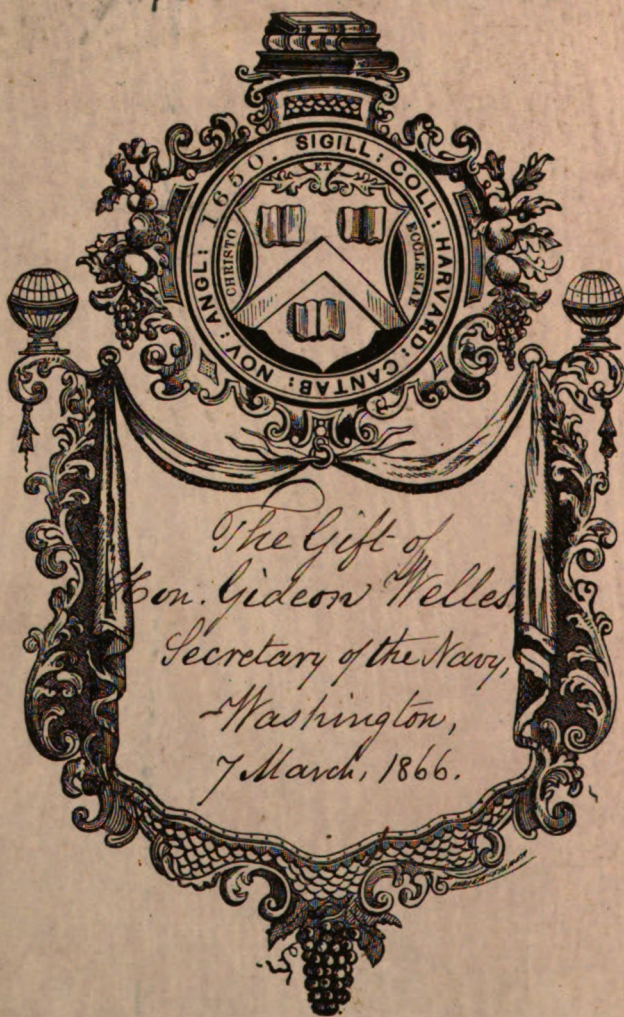 SIGILL: COLL: HARVARD: CANTAB: NOV: ANGL: 1650.
ET
CHRISTO
ECCLESIAE
The Gift of
Hon. Gideon Welles,
Secretary of the Navy,
Washington,
7 March, 1866.